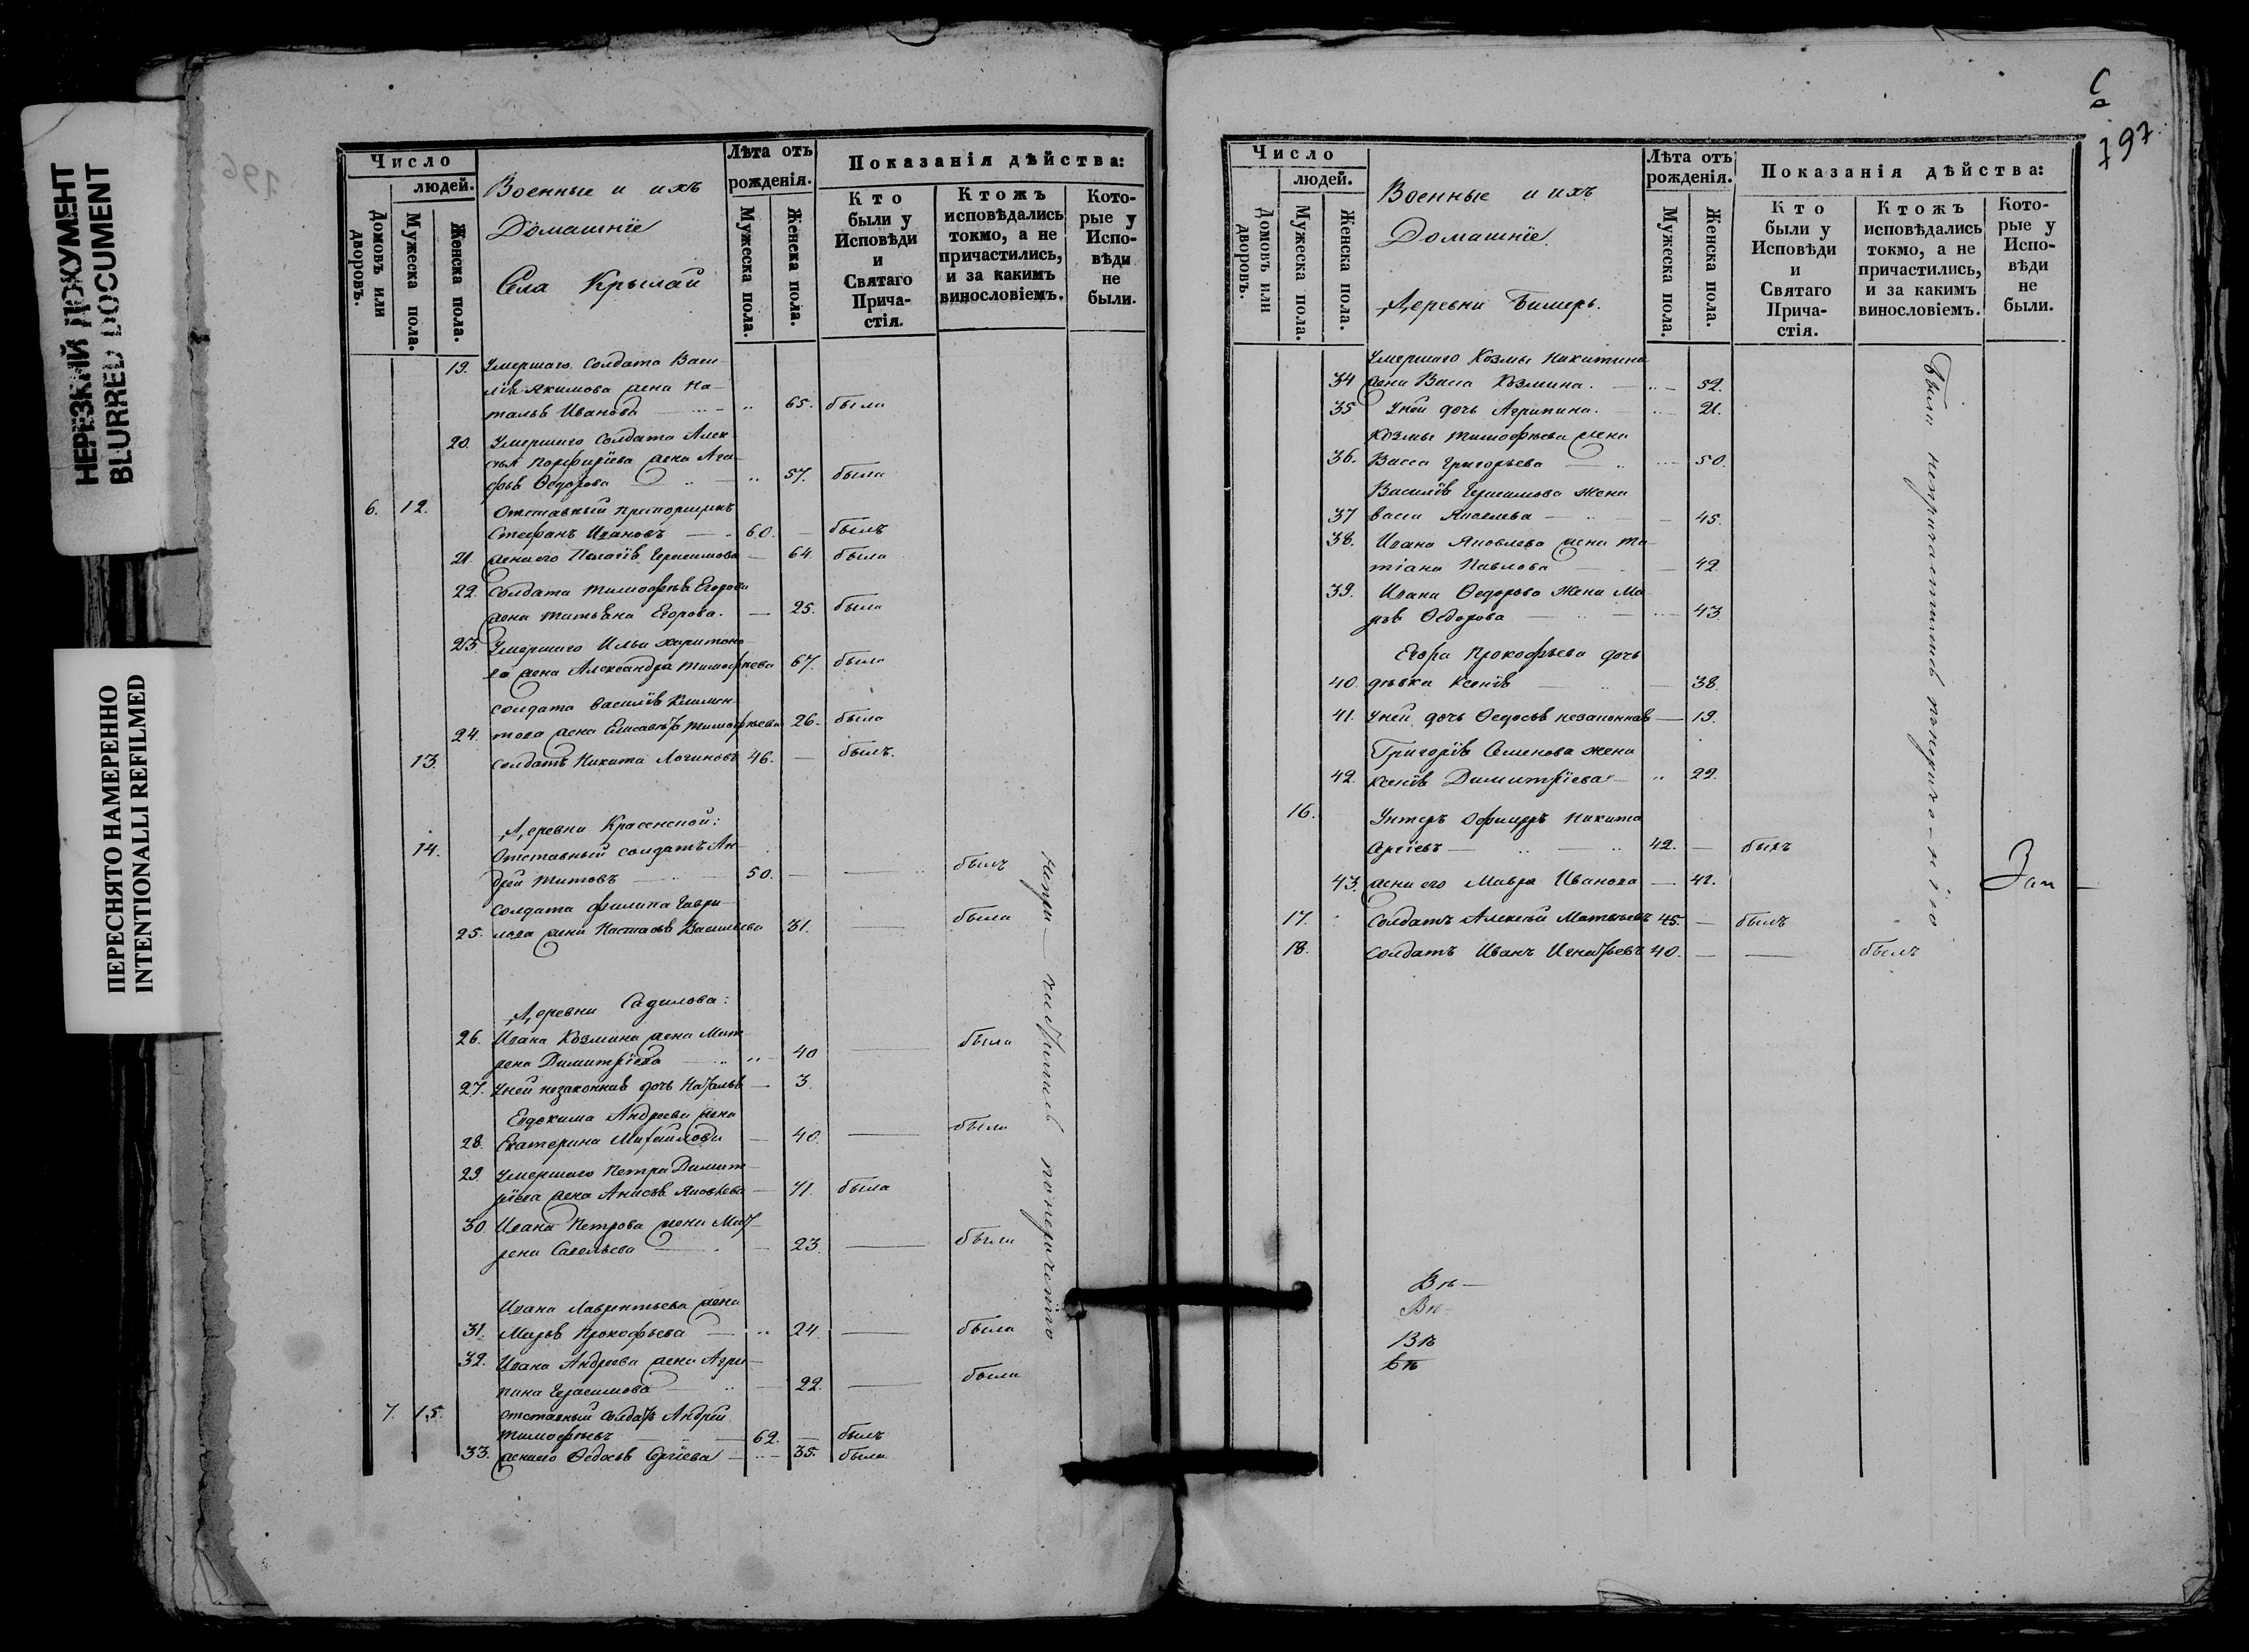 НЕРЕЗКИЙ ДОКУМЕНТ
BLURRED DOCUMENT
ПЕРЕСНЯТО НАМЕРЕННО
INTENTIONALLI REFILMED
196
Число
людей.
Домовъ или дворовъ.
Мужеска пола.
Женска пола.
Военные и ихъ
Домашніе
Села Крылай
Лѣта отъ рожденія.
Мужеска пола.
Женска пола.
Показанія дѣйства:
Кто были у Исповѣди и Святаго Прича-стія.
Ктожъ исповѣдались токмо, а не причастились, и за какимъ винословіемъ.
Кото-рые у Испо-вѣди не были.
19. Умершаго Солдата Васи-
лія Акимова жена На-
талья Иванова 65. была
20. Умершаго Солдата Алек-
сѣя Порфиріева жена Ага-
фья Ѳедорова 57. была
6. 12. Отставный прапорщикъ
Стефанъ Ивановъ 60. былъ
21. жена его Пелагія Герасимова 64 была
22. Солдата Тимофѣя Егорова
жена Татьяна Егорова. 25. была
23. Умершаго Ильи Харитоно-
ва жена Александра Тимофѣева 67. была
солдата Василія Климен-
24. това жена Елисавета Тимофѣева 26. была
13. солдатъ Никита Логиновъ 46. былъ.
Деревни Красенской:
14. Отставный солдатъ Ан-
дрей Титовъ 50. былъ
Солдата Филипа Гаври-
25. лова жена Настасья Васильева 31. была
Деревни Садилова:
26. Ивана Козмина жена Мат-
рена Димитріева 40 была
27. У ней незаконная дочь Наталья 3.
Евдокима Андреева жена
28. Екатерина Михайлова 40. была
29. Умершаго Петра Димит-
ріева жена Анисья Яковлева 71. была
30. Ивана Петрова жена Мат-
рена Савельева 23. была
Ивана Лаврентьева жена
31. Марья Прокофьева 24 была
32. Ивана Андреева жена Агри-
пина Герасимова 22. была
7. 15. Отставный солдатъ Андрей
Тимофѣевъ 62. былъ
33. жена его Ѳедосья Сергіева 35. была
197
Число
людей.
Домовъ или дворовъ.
Мужеска пола.
Женска пола.
Военные и ихъ
Домашніе.
Деревни Бимерь.
Лѣта отъ рожденія.
Мужеска пола.
Женска пола.
Показанія дѣйства:
Кто были у Исповѣди и Святаго Прича-стія.
Ктожъ исповѣдались токмо, а не причастились, и за какимъ винословіемъ.
Кото-рые у Испо-вѣди не были.
Умершаго Козмы Никитина
34 жена Васа Козмина. 52.
35 У ней дочь Агрипина. 21.
Козмы Тимофѣева жена
36. Васса Григорьева 50.
Василія Герасимова жена
37 Васа 45.
38. Ивана Яковлева жена Та-
тіана Павлова 42
39. Ивана Ѳедорова жена Ма-
рья Ѳедорова 43
Егора Прокофьева дочь
40. дѣвка Ксенія 38.
41. У ней дочь Ѳедосья незаконная 19.
Григорія Семенова жена
42. Ксенія Димитріева 22.
16. Унтеръ Офицеръ Никита
Сергіевъ 42. былъ
43. жена его Мавра Иванова 41.
17. Солдатъ Алексѣй Матвѣевъ 45. былъ
18. Солдатъ Иванъ Игнатьевъ 40. былъ
Были
Зап
Вѣ
Вѣ
Вѣ